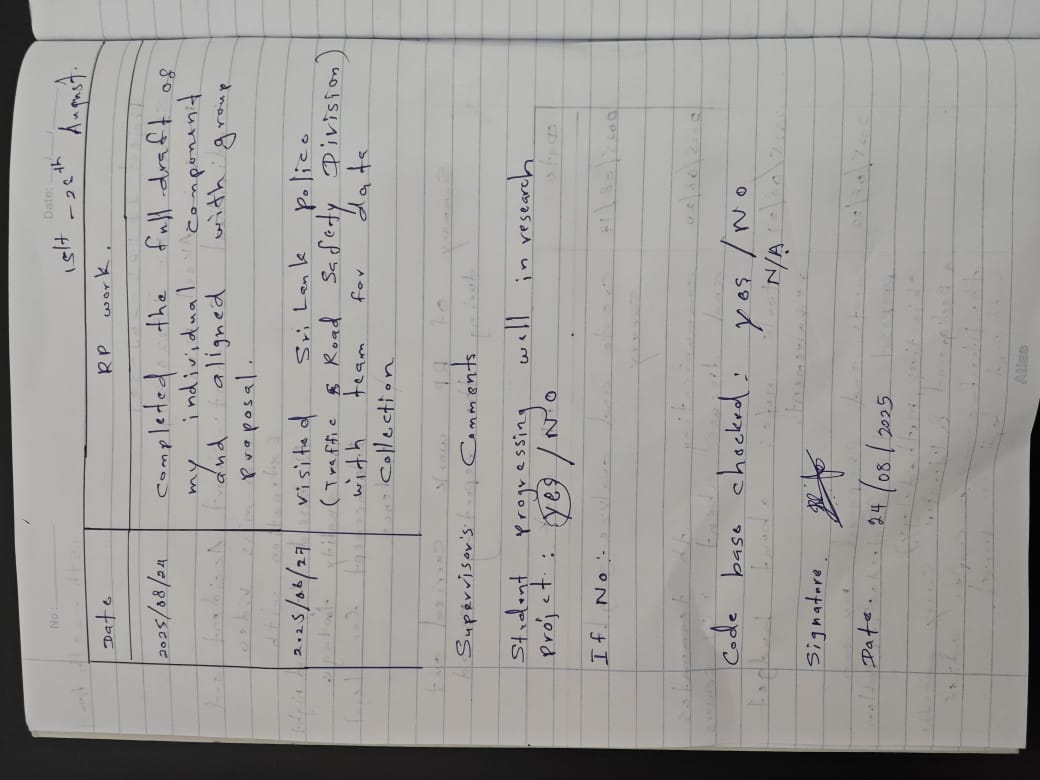 No: Date: / /
15th - 28th August.
Date RP work.
2025/08/24 completed the full draft of
my individual component
and aligned with group
proposal.
2025/08/27 visited Sri Lank police
(Traffic & Road Safety Division)
with team for data
collection
Supervisor's Comments
Student progressing well in research
projct : yes / No
If No :-
Code base checked : yes / No
N/A
Signature.
Date. 24/08/2025
Atlas